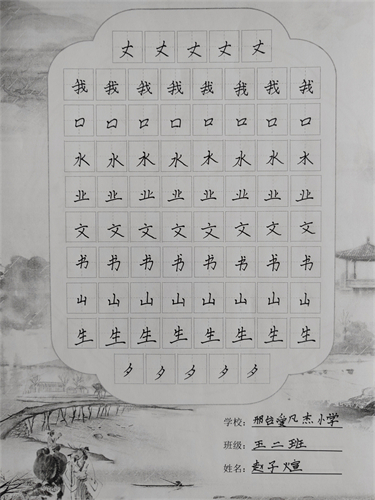 丈 丈 丈 丈 丈
我 我 我 我 我 我 我 我
口 口 口 口 口 口 口 口
水 水 水 水 水 水 水 水
业 业 业 业 业 业 业 业
文 文 文 文 文 文 文 文
书 书 书 书 书 书 书 书
山 山 山 山 山 山 山 山
生 生 生 生 生 生 生 生
夕 夕 夕 夕 夕
学校：凡杰小学
班级：五二班
姓名：赵子煊